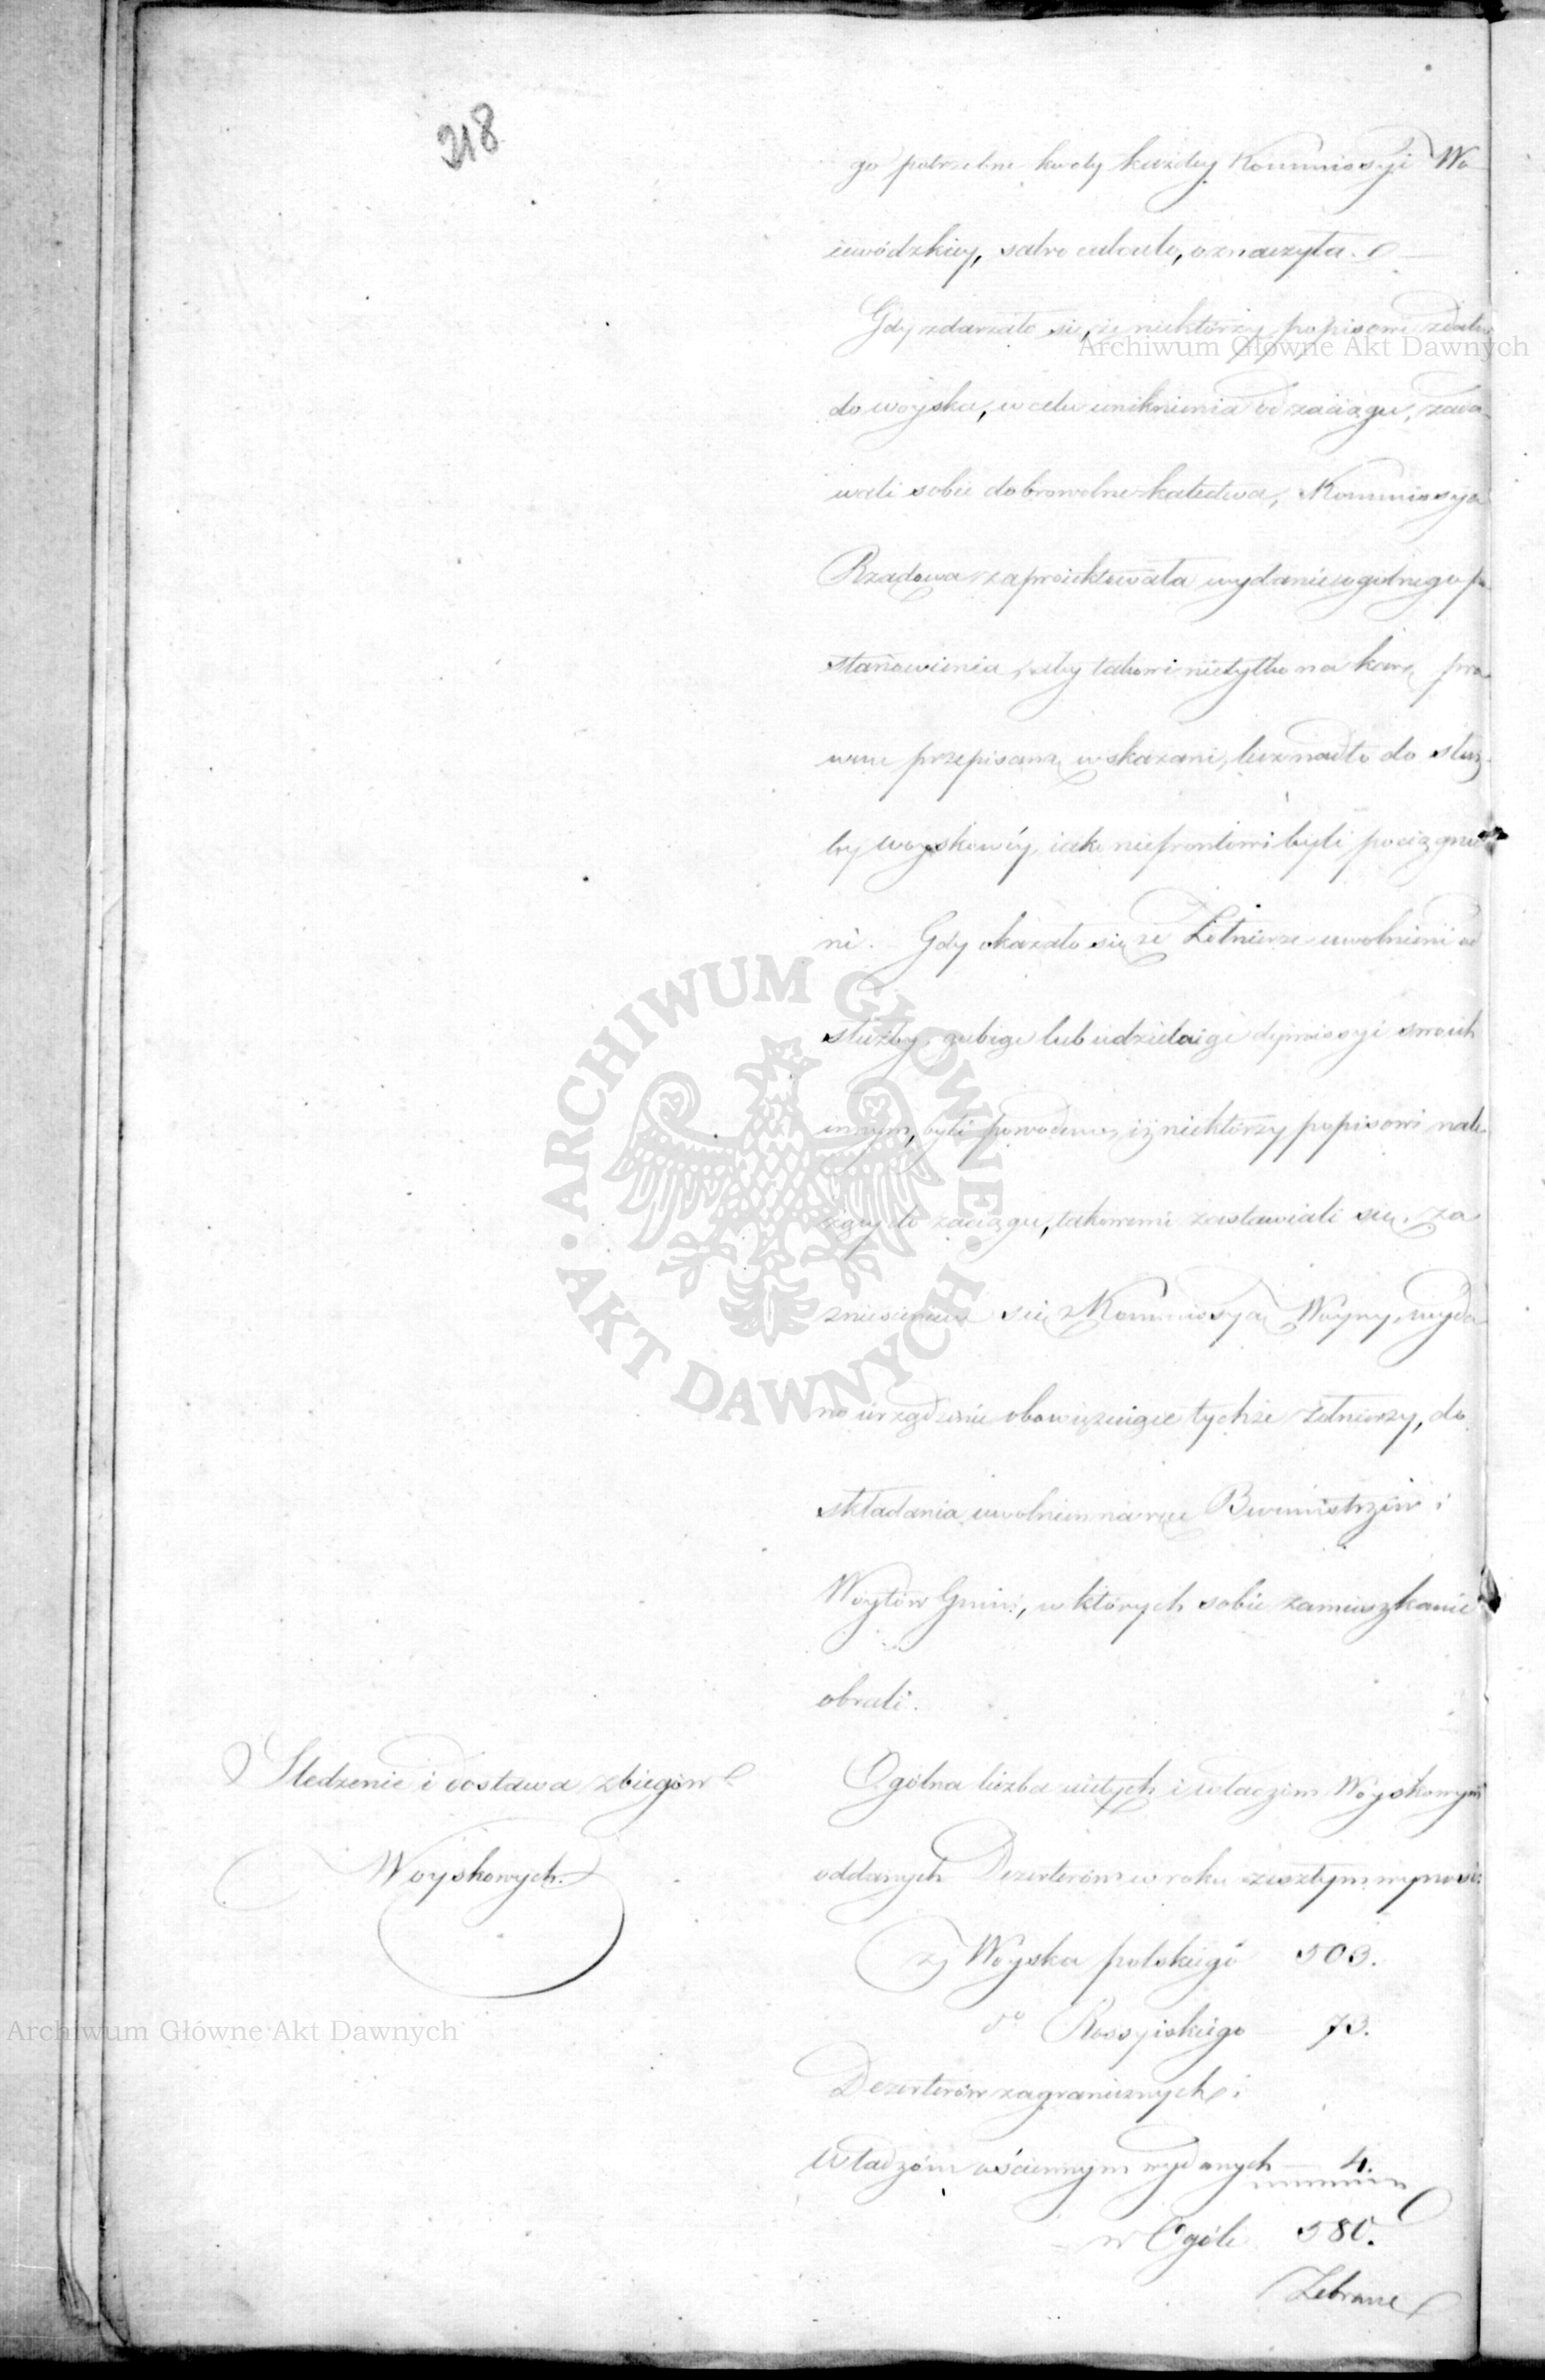 218
go potrzebne kwoty każdey Kommissyi Wo
iewódzkiey, salvo calculo, oznaczyła.
Gdy zdarzało się, że niektórzy popisowi zdatni
do woyska, w celu uniknienia od zaciągu, zada
wali sobie dobrowolne kalectwa, Kommissya
Rządowa zaproiektowała wydanie ogólnego po
stanowienia, żeby takowi nietylko na karę pra
wem przepisaną wskazani, lecz nadto do służ
by woyskowéy, iako niefrontowi byli pociągnię
ni. Gdy okazało się że Żołnierze uwolnieni od
służby, gubiąc lub udzielaiąc dymissyi swoich
innym, byli powodem, iż niektórzy popisowi nale
żący do zaciągu, takowemi zastawiali się, za
zniesieniem się z Kommissyą Woyny, wyda
no urządzenie obowięzuiące tychże Żołnierzy, do
składania uwolnień na ręce Burmistrzów i
Woytów Gmin, w których sobie zamieszkanie
obrali.
Śledzenie i dostawa zbiegów
Woyskowych.
Ogólna liczba uiętych i władzom Woyskowym
oddanych Dezerterów w roku zeszłym wynosi:
z Woyska polskiego 503.
do Rossyiskiego 73.
Dezerterów zagranicznych i
Władzom ościennym wydanych 4.
w Ogóle 580.
Zebrane
Archiwum Główne Akt Dawnych
ARCHIWUM GŁÓWNE AKT DAWNYCH
Archiwum Główne Akt Dawnych